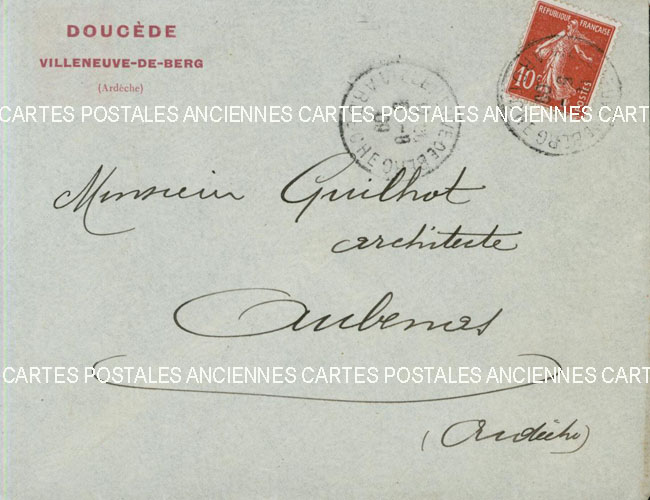 DOUCÈDE
VILLENEUVE-DE-BERG
(Ardèche)
REPUBLIQUE FRANÇAISE
10c
POSTES
CARTES POSTALES ANCIENNES CARTES POSTALES ANCIENNES CART
Monsieur Guilhot
architecte
Aubenas
CARTES POSTALES ANCIENNES CARTES POSTALES ANCIENNES CART
(Ardèche)